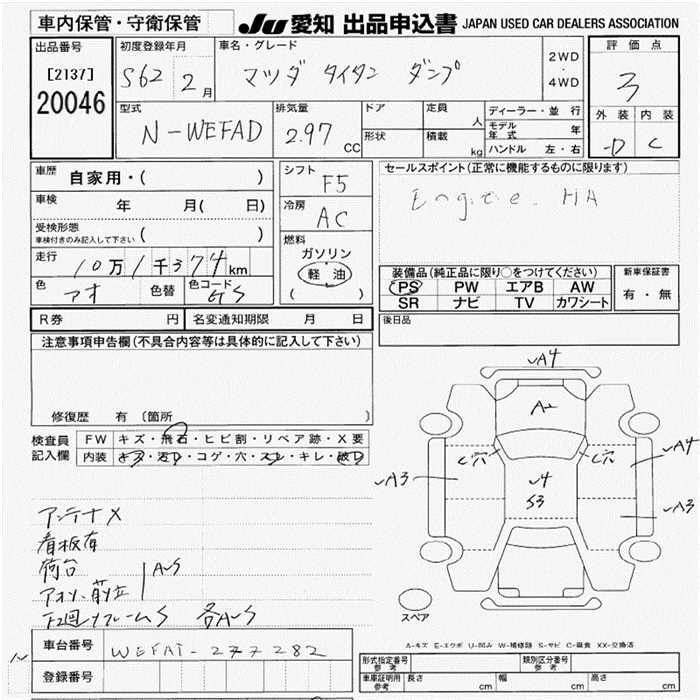 車内保管・守衛保管 JU 愛知 出品申込書 JAPAN USED CAR DEALERS ASSOCIATION
出品番号 初度登録年月 車名・グレード 評価点
[2137] S62 2月 マツダ タイタン ダンプ 2WD・4WD 3
20046
型式 排気量 ドア 定員 人 ディーラー・並行 外装 内装
N-WEFAD 2.97 CC 形状 積載 kg モデル年式 年 D C
ハンドル 左・右
車歴 自家用・( ) シフト F5 セールスポイント(正常に機能するものに限ります)
車検 年 月( 日) 冷房 AC Engine. HA
受検形態 車検付きのみ記入して下さい ( )
燃料 ガソリン 軽油 ( )
走行 10万1千374km
装備品(純正品に限り○をつけてください) 新車保証書
色 アオ 色替 色コード GS PS PW エアB AW 有・無
SR ナビ TV カワシート
R券 円 名変通知期限 月 日 後日品
注意事項申告欄(不具合内容等は具体的に記入して下さい)
修復歴 有 〔箇所 〕
検査員記入欄 FW キズ・飛石・ヒビ割・リペア跡・X要
内装 キズ・汚レ・コゲ・穴・スレ・キレ・破レ
A4
A2
C穴 C穴
A4
A3 4
S3
A3
アンテナX
看板有
荷台
アオリ・前立 AS
下回リフレームS 各AS
スペア
A-キズ E-エクボ U-凹み W-補修跡 S-サビ C-腐食 XX-交換済
車台番号 WEFAT-277282
N
登録番号
形式指定番号 参考 類別区分番号 参考
車庫証明用 参考 長さ cm 幅 cm 高さ cm